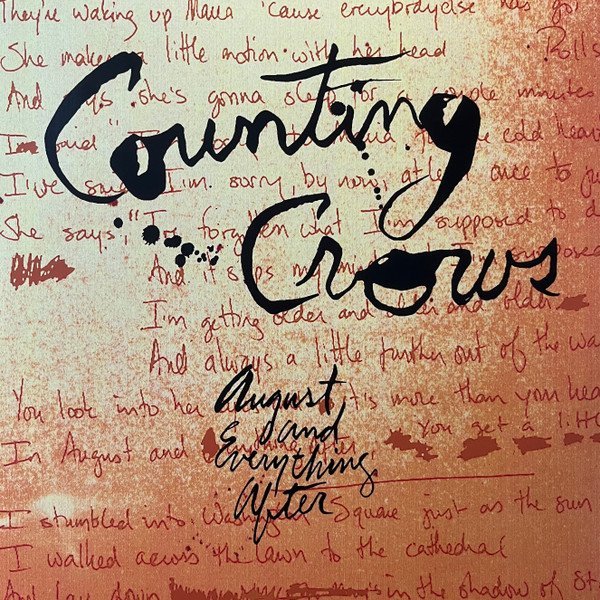 They're waking up Maria 'cause everybody else has
She makes a little motion with her head
Rolls
And says she's gonna sleep for a couple minutes
Counting
I said
to Maria for the cold
I've said I'm sorry, by now, at least once to
Crows
She says, "I've forgotten what I'm supposed to
And it slips my mind
I'm getting older and older and older
And always a little further out of the
August
and
Everything
After
You look into her it's more than your
In August and
You get a
I stumbled into Washington Square just as the sun
I walked across the lawn to the cathedral
And lay down in the shadow of St